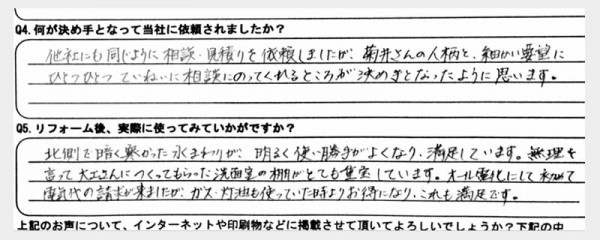 Q4. 何が決め手となって当社に依頼されましたか?
他社にも同じように相談・見積りを依頼しましたが、菊井さんの人柄と、細かい要望に
ひとつひとつていねいに相談にのってくれるところが決めきとなったように思います。
Q5. リフォーム後、実際に使ってみていかがですか?
北側で暗く寒かった水まわりが、明るく使い勝手がよくなり、満足しています。無理を
言って大工さんにつくってもらった洗面室の棚がとても重宝しています。オール電化にして初めて
電気代の請求が来ましたが、ガス・灯油も使っていた時よりお得になり、これも満足です。
上記のお声について、インターネットや印刷物などに掲載させて頂いてよろしいでしょうか?下記の中